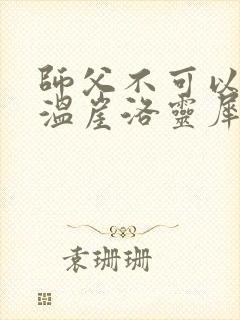 師父不可以
溫崖洛靈犀
袁珊珊